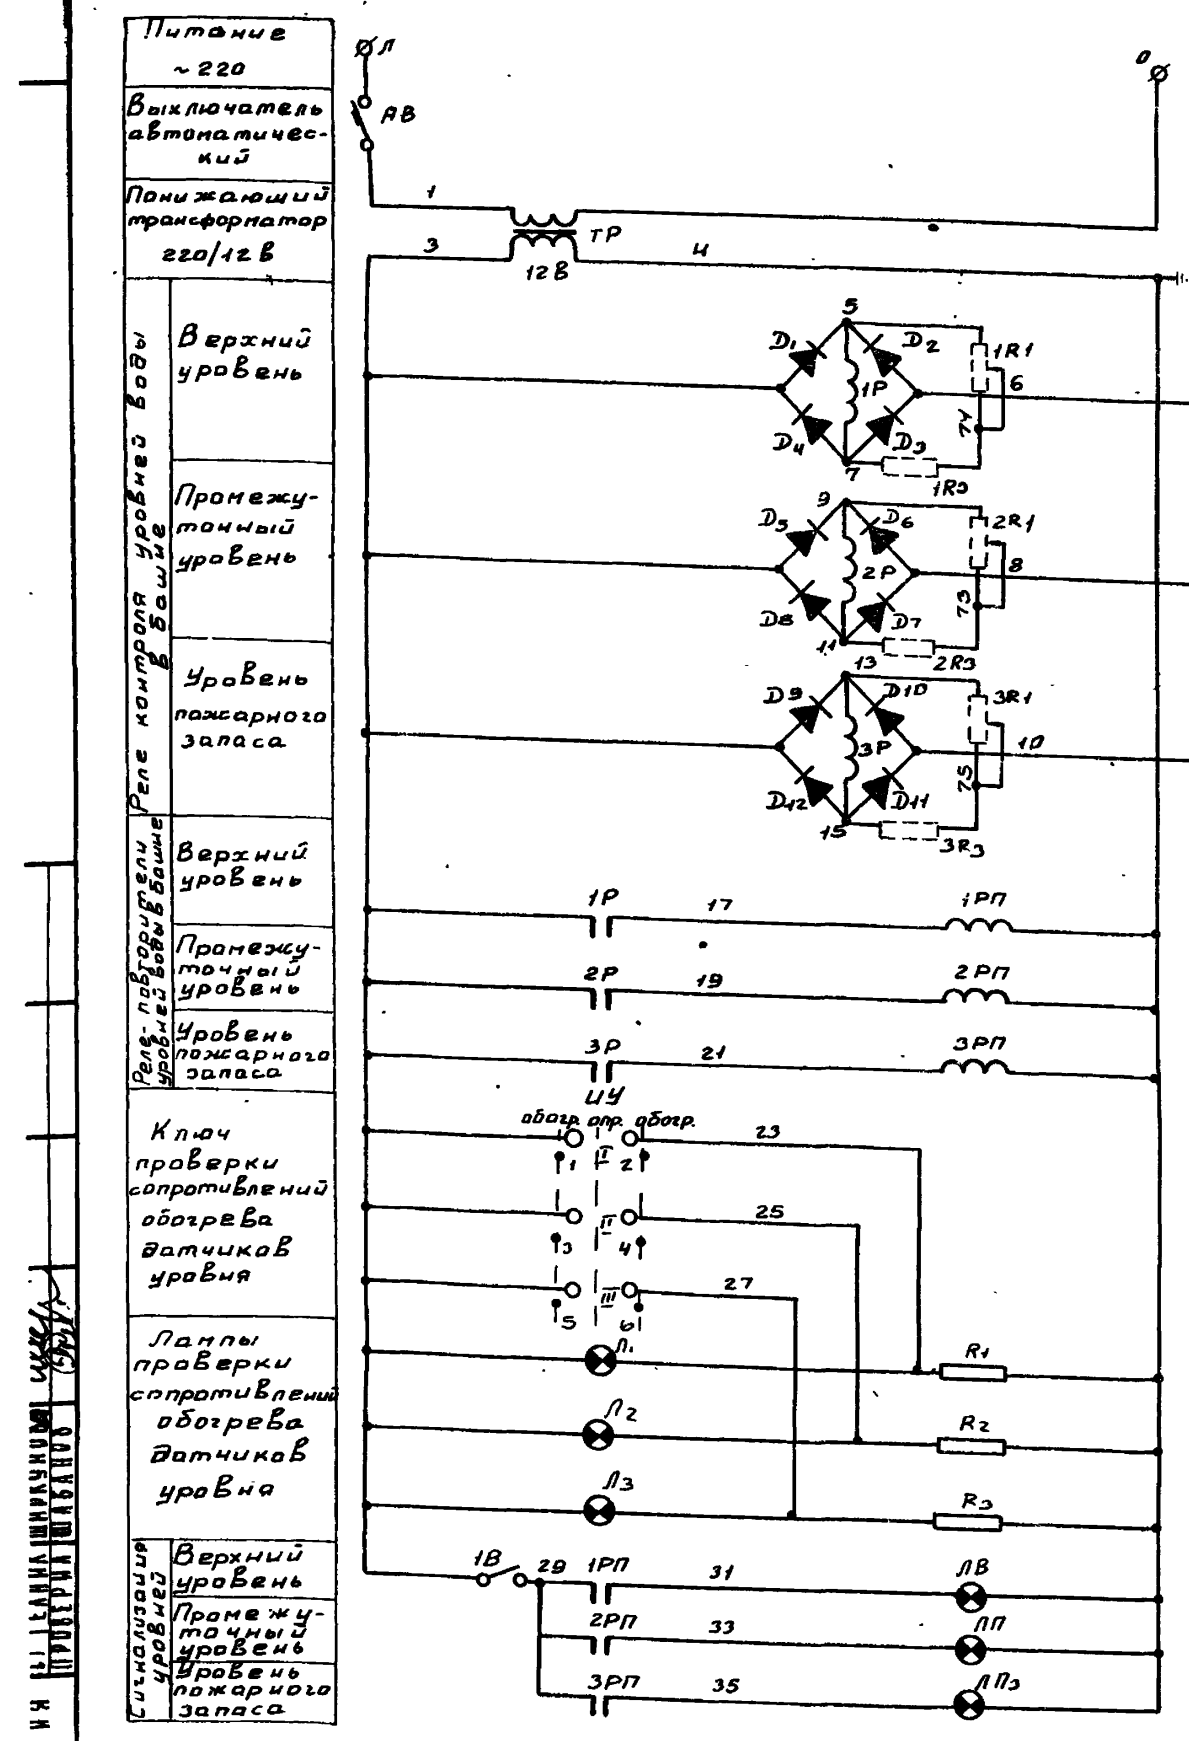 Питание
~ 220
Выключатель
автоматичес-
кий
Понижающий
трансформатор
220/12 В
Реле контроля уровней воды
в башне
Верхний
уровень
Промежу-
точный
уровень
Уровень
пожарного
запаса
Реле-повторители
уровней воды в башне
Верхний
уровень
Промежу-
точный
уровень
Уровень
пожарного
запаса
Ключ
проверки
сопротивлений
обогрева
датчиков
уровня
Лампы
проверки
сопротивлений
обогрева
датчиков
уровня
Сигнализация
уровней
Верхний
уровень
Промежу-
точный
уровень
Уровень
пожарного
запаса
Л
0
АВ
1
ТР
3
4
12 В
5
Д1
Д2
1R1
1Р
6
74
Д4
Д3
7
1R3
9
Д5
Д6
2R1
2Р
8
73
Д8
Д7
11
2R3
13
Д9
Д10
3R1
3Р
10
75
Д12
Д11
15
3R3
1Р
17
1РП
2Р
19
2РП
3Р
21
3РП
ИУ
обогр. опр. обогр.
23
1
I
2
25
3
II
4
27
5
III
6
Л1
R1
Л2
R2
Л3
R3
1В
29
1РП
31
ЛВ
2РП
33
ЛП
3РП
35
ЛПз
ПРОВЕРИЛ